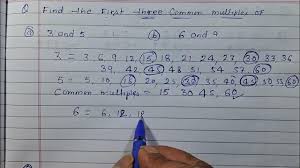 Q Find the First three Common multiples of
(a) 3 and 5 (b) 6 and 9
3 = 3, 6, 9, 12, 15, 18, 21, 24, 27, 30, 33, 36
39, 42, 45, 48, 51, 54, 57, 60
5 = 5, 10, 15, 20, 25, 30, 35, 40, 45, 50, 55, 60
Common multiples = 15 30 45, 60
6 = 6, 12, 18